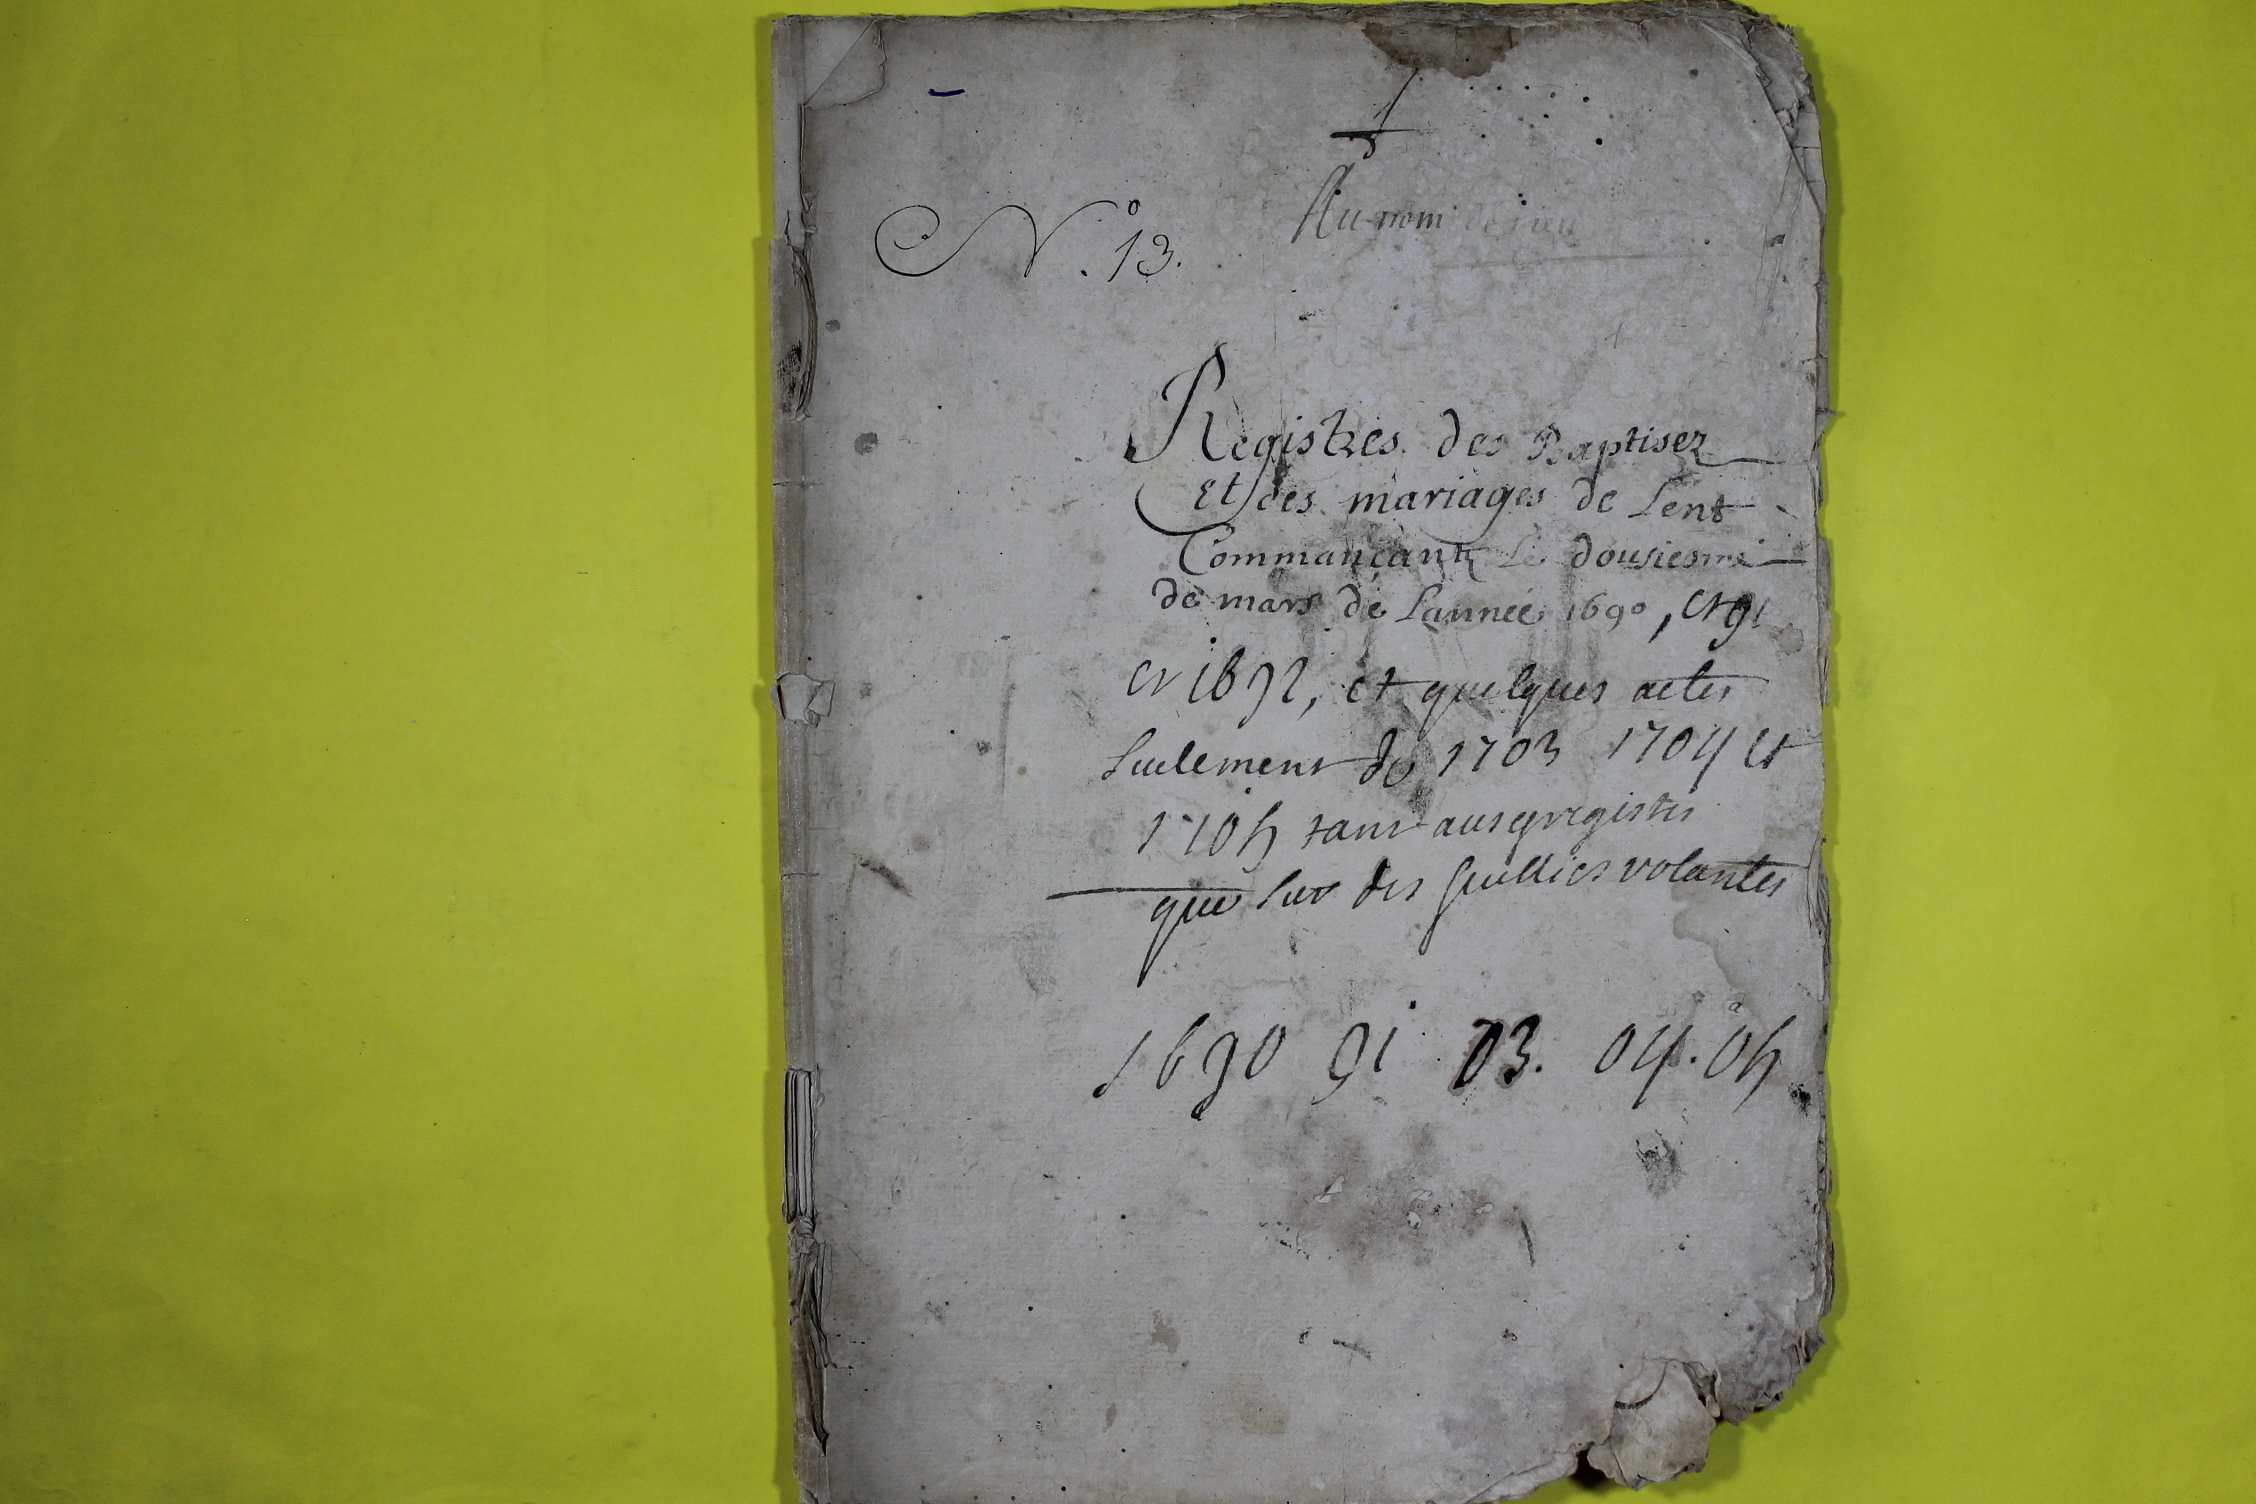 Nº. 13.
Au nom de
Registres des Baptisez
Et des mariages de Lent
Commançant Le dousiesme
de mars de Lannee 1690, et 91
et 1692, et quelques actes
seulement de 1703 1704 et
1705 tant aus registres
que sur des feuillies volantes
1690 91 03. 04. 05